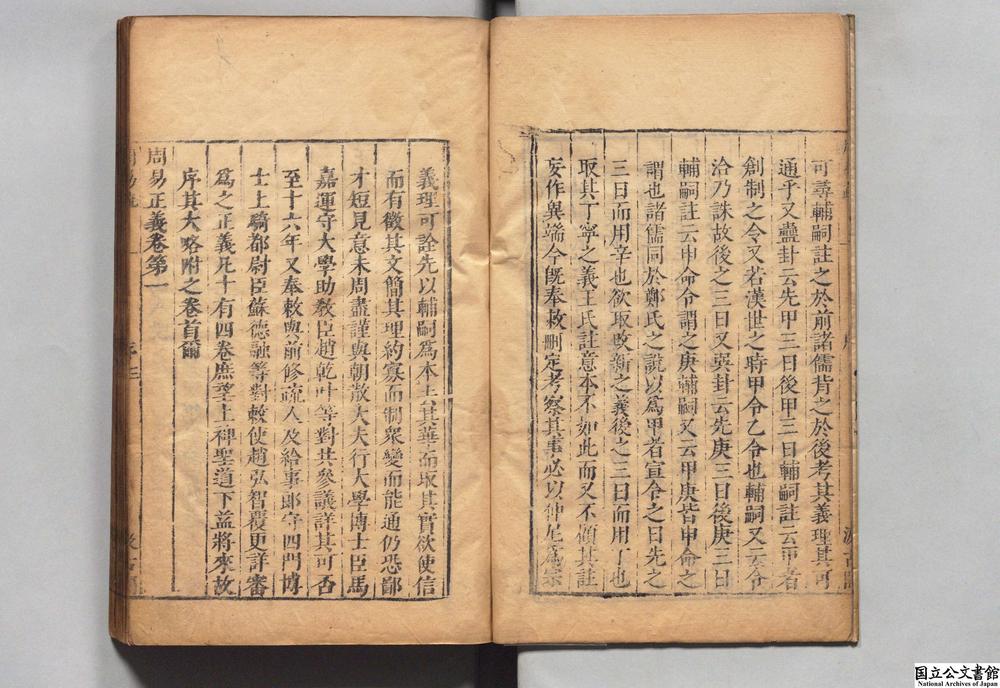 可尋輔嗣註之於前諸儒背之於後考其義理其可
通乎又蠱卦云先甲三日後甲三日輔嗣註云甲者
創制之令又若漢世之時甲令乙令也輔嗣又云令
洽乃誅故後之三日又巽卦云先庚三日後庚三日
輔嗣註云申命令謂之庚輔嗣又云甲庚皆申命之
謂也諸儒同於鄭氏之說以爲甲者宣令之日先之
三日而用辛也欲取改新之義後之三日而用丁也
取其丁寧之義王氏註意本不如此而又不顧其註
妄作異端今旣奉敕刪定考察其事必以仲尼爲宗
義理可詮先以輔嗣爲本去其華而取其實欲使信
而有徵其文簡其理約寡而制衆變而能通仍恐鄙
才短見意未周盡謹與朝散大夫行大學博士臣馬
嘉運守大學助敎臣趙乾叶等對共參議詳其可否
至十六年又奉敕與前修疏人及給事郎守四門博
士上騎都尉臣蘇德融等對敕使趙弘智覆更詳審
爲之正義凡十有四卷庶望上裨聖道下益將來故
序其大略附之卷首爾
周易正義卷第一
国立公文書館
National Archives of Japan